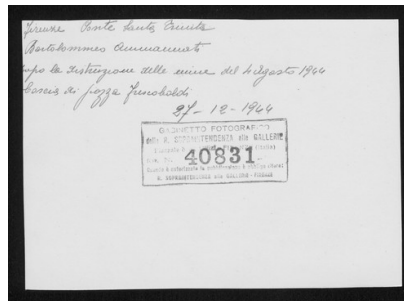 Firenze Ponte Santa Trinita
Bartolommeo Ammannati
dopo la distruzione delle mine del 4 Agosto 1944
Coscia di piazza Frescobaldi
27-12-1944
GABINETTO FOTOGRAFICO
della R. SOPRINTENDENZA alle GALLERIE
40831
R. SOPRINTENDENZA alle GALLERIE - FIRENZE